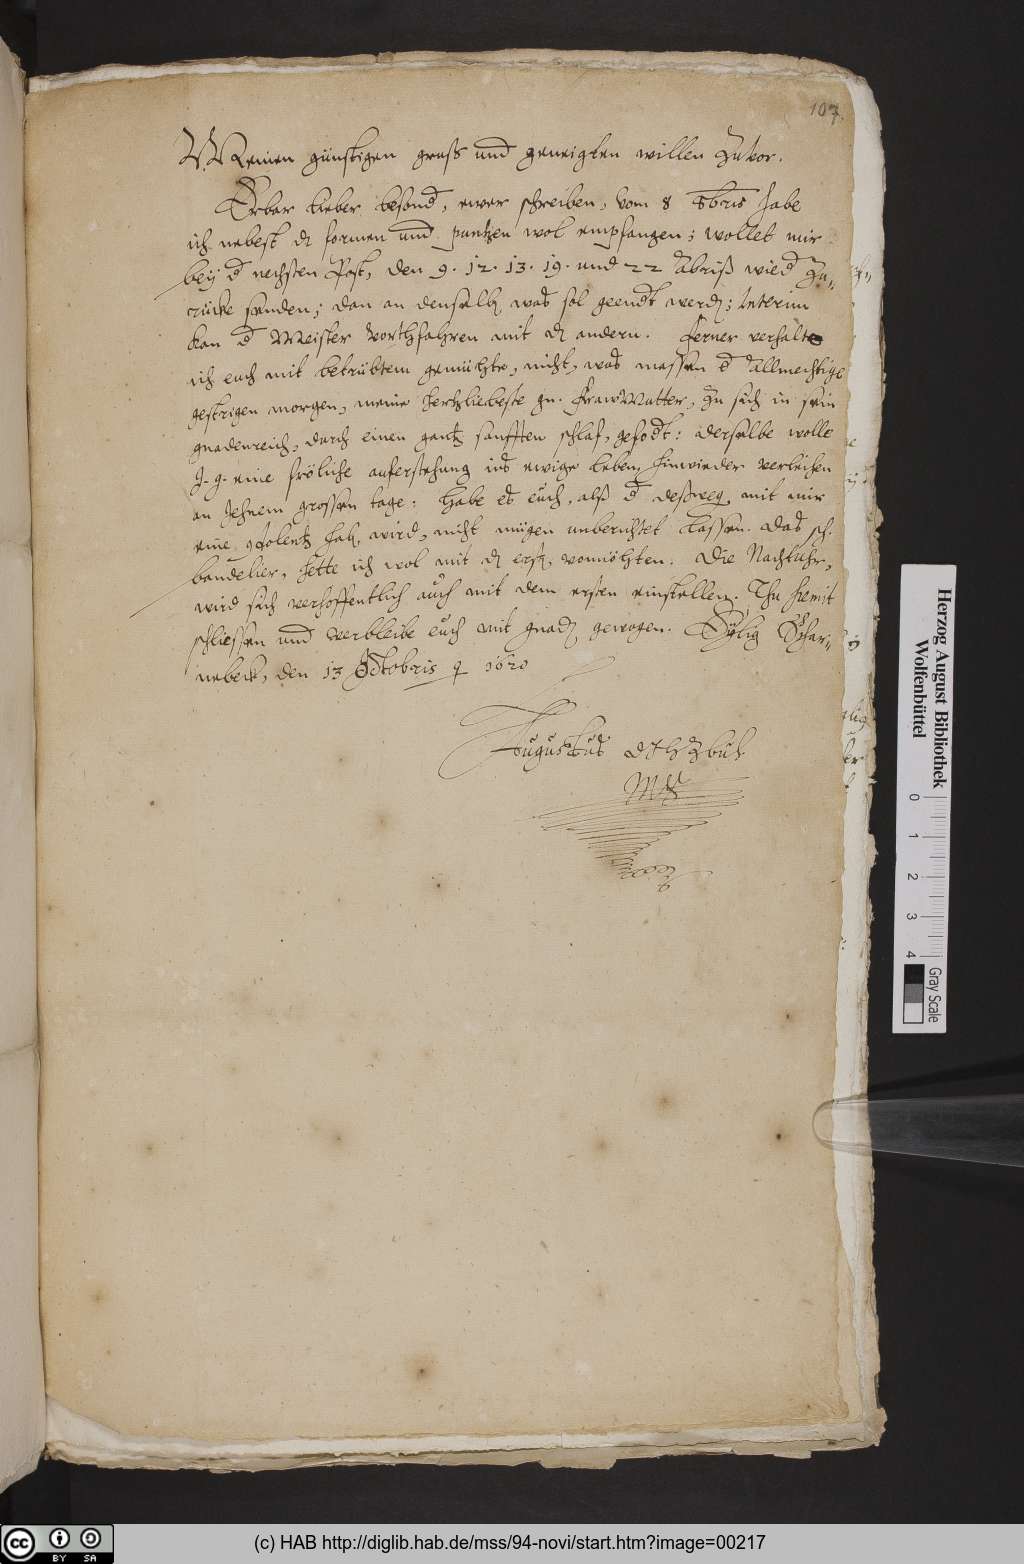 107.
Meinen günstigen grus und geneigten willen zuvor.
Erbar lieber besond, ewer schreiben, vom 8 8bris habe
ich nebest d formen und puntzen wol empfangen; wollet mir
bey d nechsten Post, den 9. 12. 13. 19. und 22 Abriß wied zu„
rücke senden; dan an denselb was sol geendt werd; Interim
kan d Meister vorthfahren mit d andern. Ferner verhalte
ich euch mit betrübtem gemühte, nicht, was massen d Allmechtige
gestrigen morgen, meine hertzliebeste gn. FrawMutter, zu sich in sein
gnadenreich, durch einen gantz sanfften schlaf, gefodt: derselbe wolle
I. g. eine fröliche auferstehung ins ewige leben hinwieder verleihen
an Jehnem grossen tage: Habe es euch, alß d deßweg, mit mir
eine hab, wird, nicht mügen unberichtet lassen. Das sch.
bandelier, hette ich wol mit d erst, vonnöhten. Die Nachfuhr,
wird sich verhoffentlich auch mit dem ersten einstellen. Thu hiemit
schliessen und verbleibe euch mit gnad gewogen. Eylig Schar„
nebeck, den 13 Octobris 1620
Augustus d H z B u L
Mp
Herzog August Bibliothek
Wolfenbüttel
0 1 2 3 4
Gray Scale
cc BY SA
(c) HAB http://diglib.hab.de/mss/94-novi/start.htm?image=00217